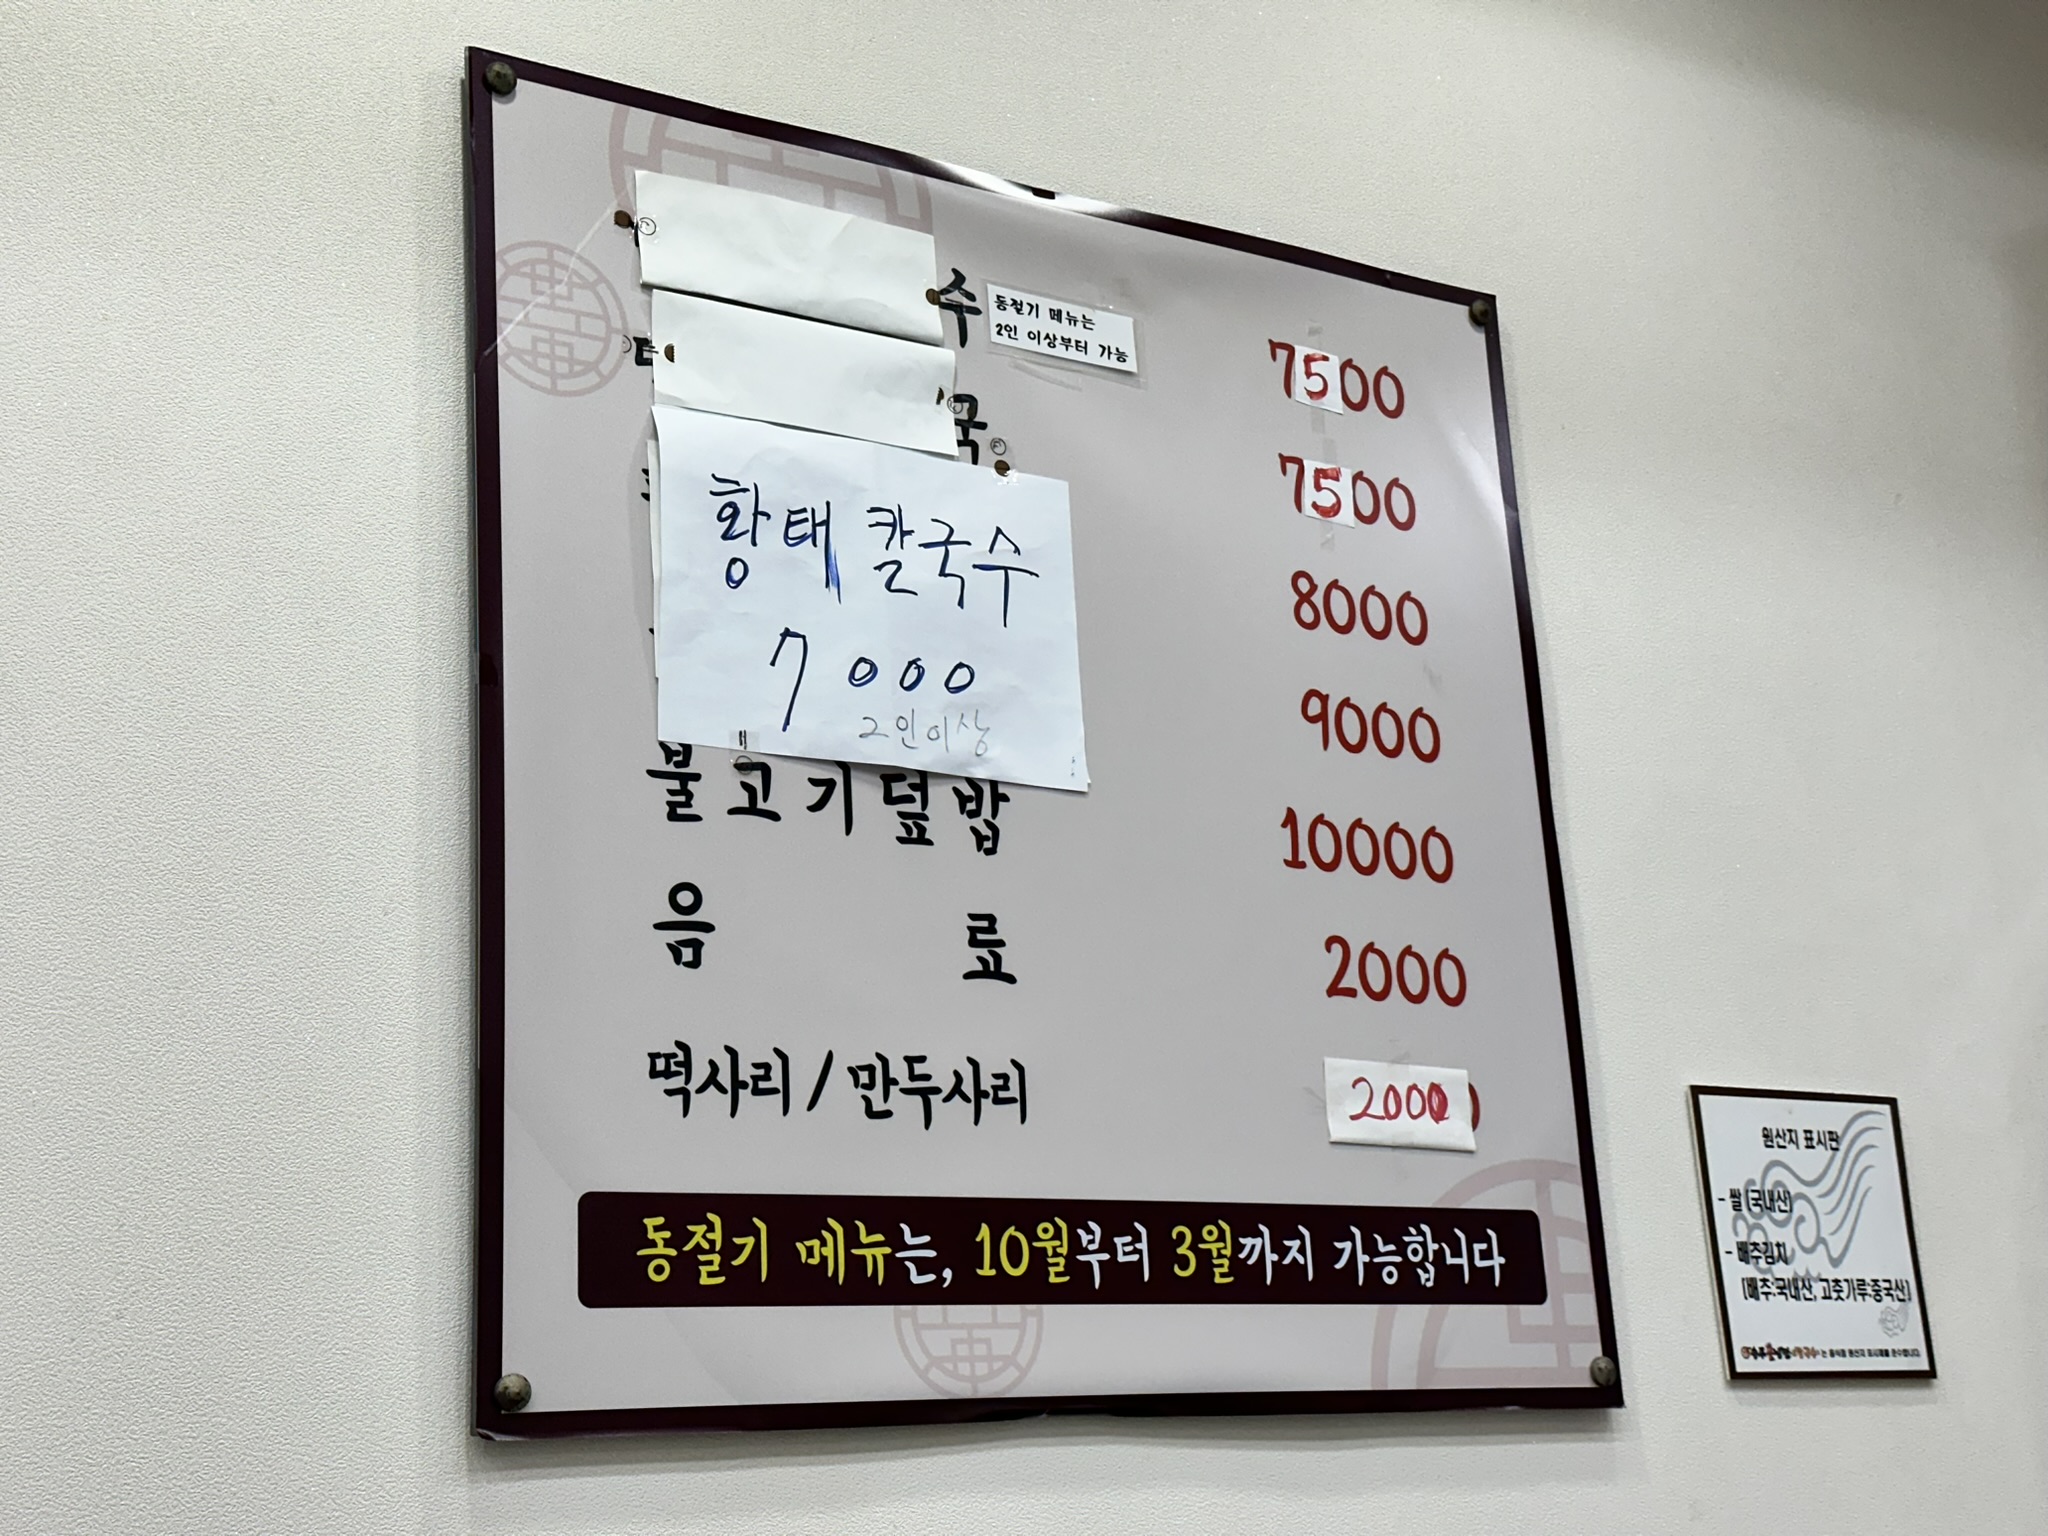 수 동절기 메뉴는
2인 이상부터 가능
7500
국
7500
황태 칼국수
7000
2인이상
8000
9000
불고기덮밥 10000
음료 2000
떡사리/만두사리 2000
동절기 메뉴는, 10월부터 3월까지 가능합니다
원산지 표시판
- 쌀 (국내산)
- 배추김치
(배추:국내산, 고춧가루:중국산)